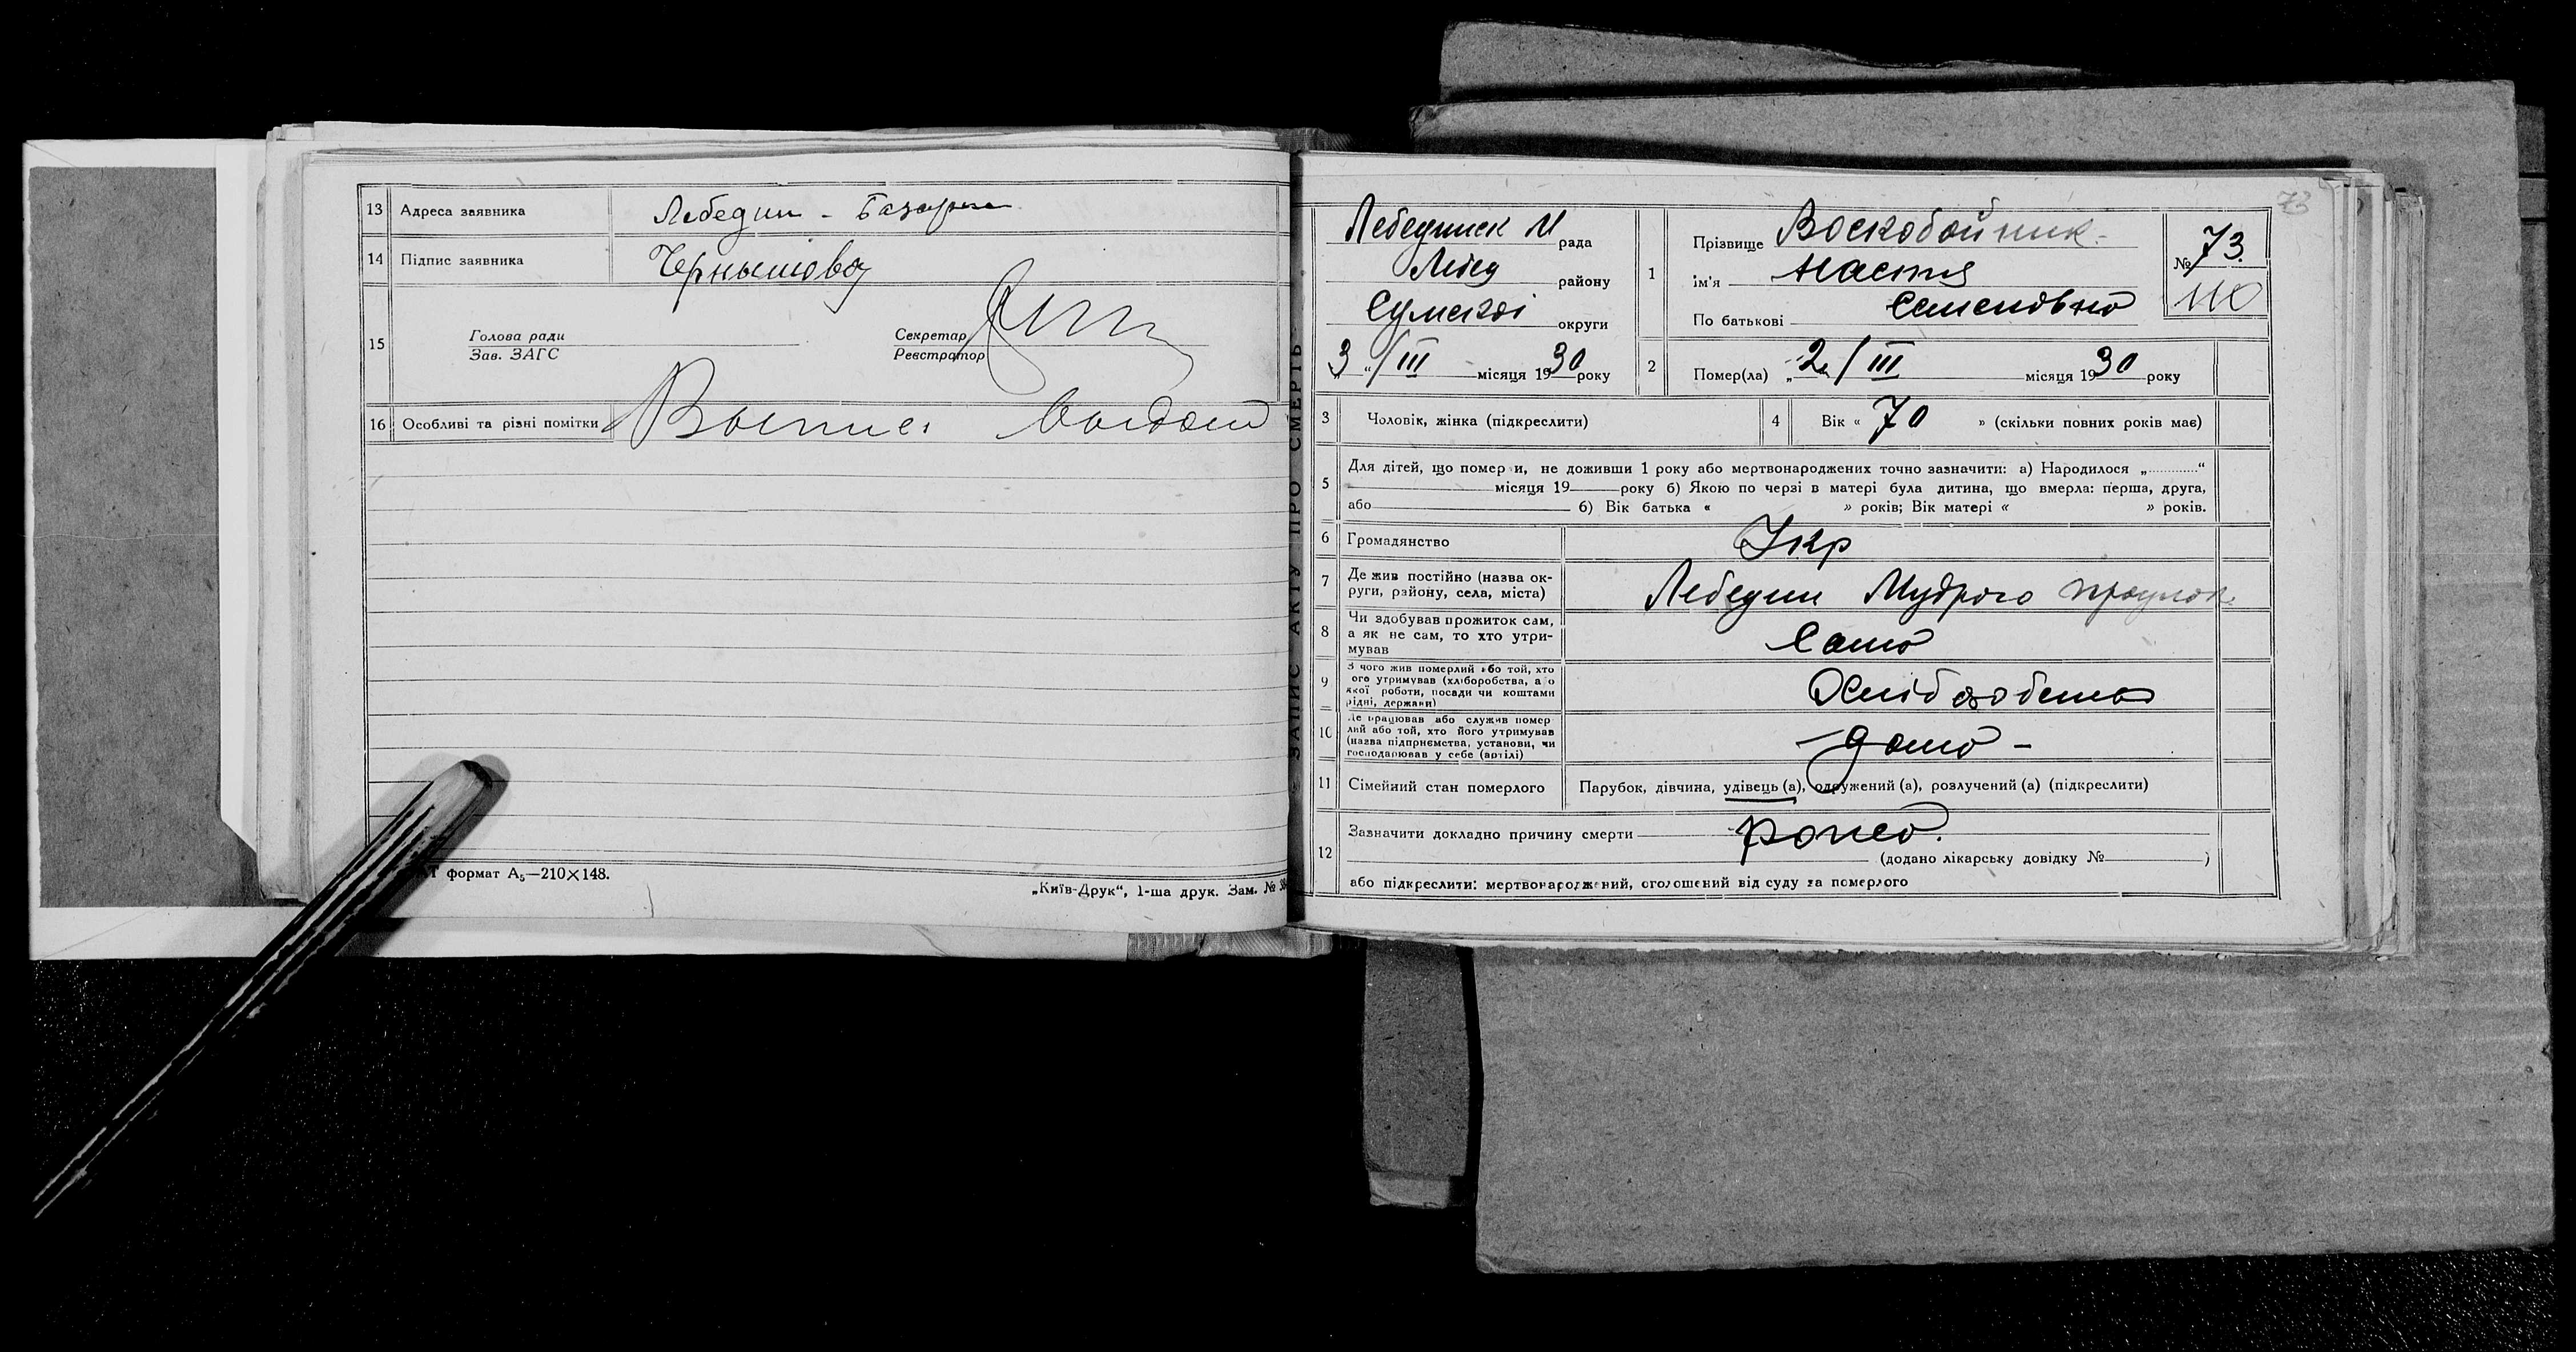 13 Адреса заявника Лебедин - Базарна
14 Підпис заявника Чернышова
15 Голова ради
Зав. ЗАГС
Секретар
Реєстратор
16 Особливі та різні помітки
формат А₅—210×148.
„Київ-Друк“, 1-ша друк. Зам. №
ЗАПИС АКТУ ПРО СМЕРТЬ
73
Лебединск М рада
Лебед району
Сумської округи
„3“/III місяця 1930 року
1 Прізвище Воскобойник
ім'я Настя
По батькові Семеновна
№ 73.
110
2 Помер(ла) „2“/III місяця 1930 року
3 Чоловік, жінка (підкреслити)
4 Вік « 70 » (скільки повних років має)
5 Для дітей, що померли, не доживши 1 року або мертвонароджених точно зазначити: а) Народилося „............“
місяця 19 року б) Якою по черзі в матері була дитина, що вмерла: перша, друга,
або б) Вік батька « » років; Вік матері « » років.
6 Громадянство Укр
7 Де жив постійно (назва ок-
руги, району, села, міста) Лебедин Мудрого
8 Чи здобував прожиток сам,
а як не сам, то хто утри-
мував Сама
9 З чого жив померлий або той, хто
ого утримував (хліборобства, або
якої роботи, посади чи коштами
рідні, держави)
10 Де працював або служив помер
лий або той, хто його утримував
(назва підприємства, установи, чи
господарював у себе (артілі) - дома -
11 Сімейний стан померлого Парубок, дівчина, удівець (а), одружений (а), розлучений (а) (підкреслити)
12 Зазначити докладно причину смерти
(додано лікарську довідку № )
або підкреслити: мертвонароджений, оголошений від суду за померлого